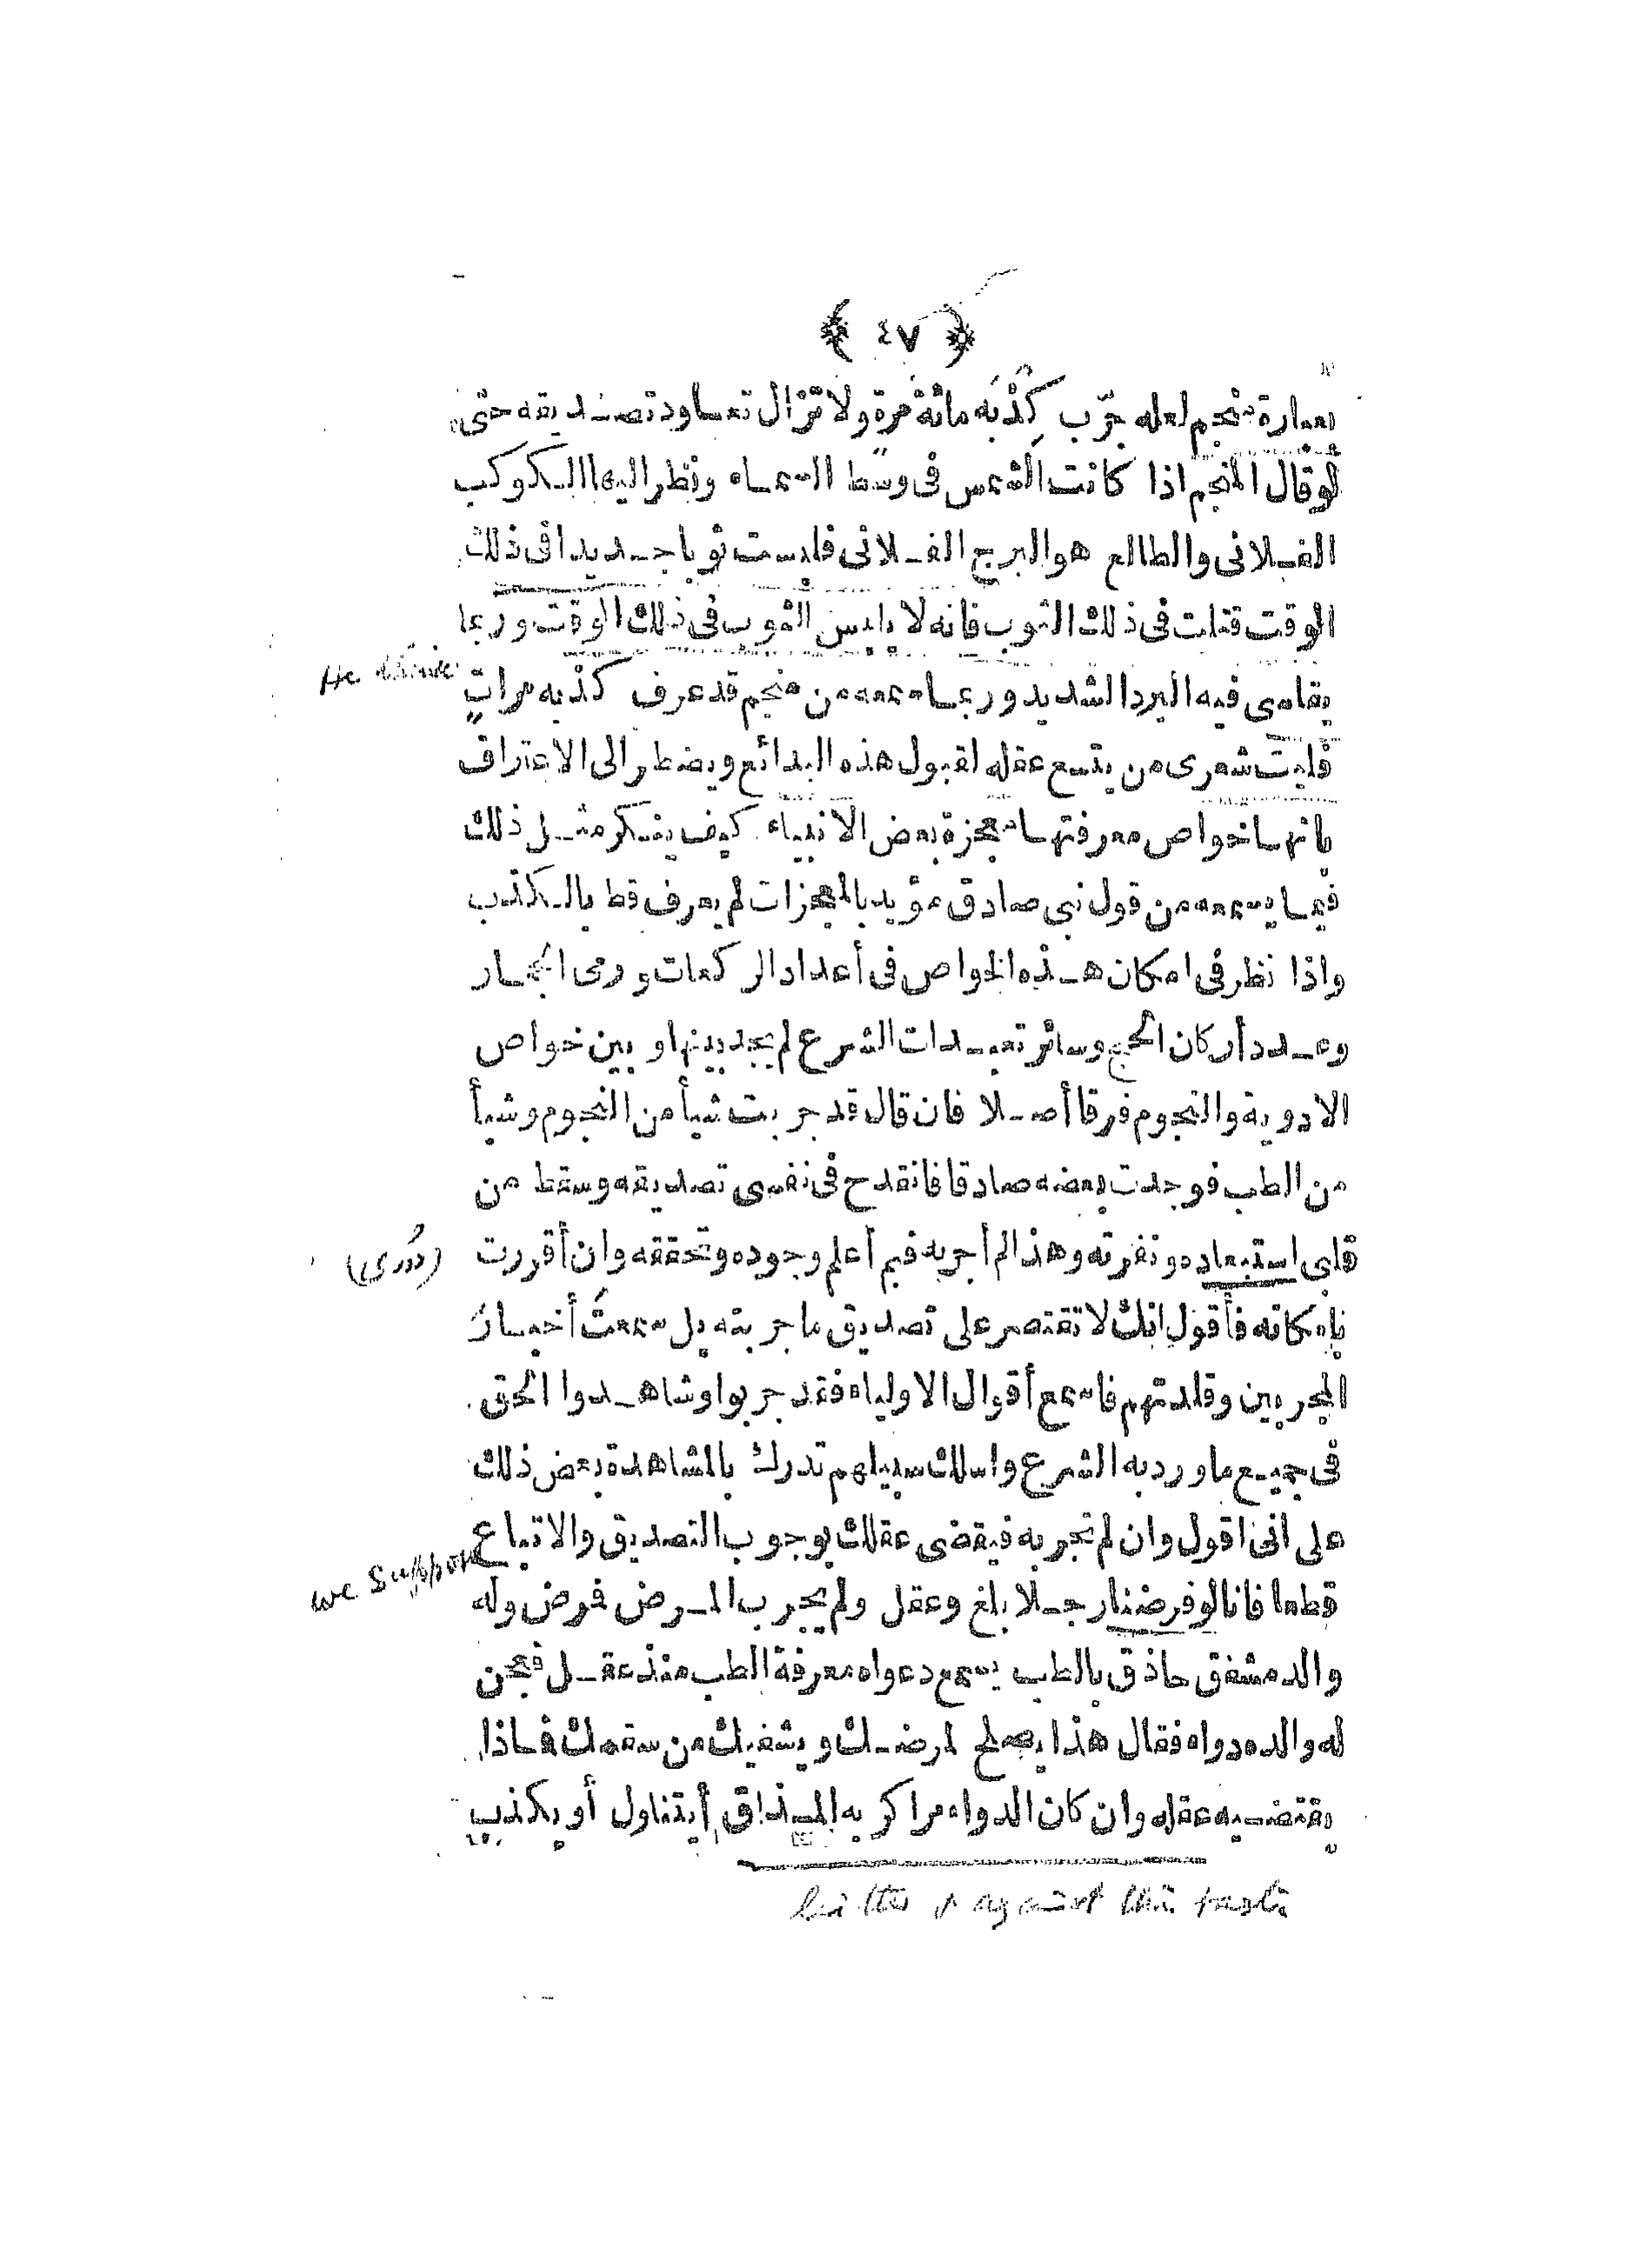 ﴿ ٤٧ ﴾
بعبارة منجم لعله جرّب كِذْبَه مائة مرة ولا تزال تعاود تصديقه حتى
لو قال المنجم اذا كانت الشمس فى وسط السماء ونظر اليها الكوكب
الفلانى والطالع هو البرج الفلانى فلبست ثوبا جديدا فى ذلك
الوقت قتلت فى ذلك الثوب فانه لا يلبس الثوب فى ذلك الوقت وربما
He
يقاسى فيه البرد الشديد وربما سمعه من منجم قد عرف كذبه مرات
فليت شعرى من يتسع عقله لقبول هذه البدائع ويضطر الى الاعتراف
بانها خواص معرفتها معجزة بعض الانبياء كيف ينكر مثل ذلك
فيما يسمعه من قول نبى صادق مؤيد بالمعجزات لم يعرف قط بالكذب
واذا نظر فى امكان هذه الخواص فى أعداد الركعات ورمى الجمار
وعدد أركان الحج وسائر تعبدات الشرع لم يجد بينها وبين خواص
الادوية والنجوم فرقا أصلا فان قال قد جربت شيأ من النجوم وشيأ
من الطب فوجدت بعضه صادقا فانقدح فى نفسى تصديقه وسقط من
قلبى استبعاده ونفرته وهذا لم أجربه فبم أعلم وجوده وتحققه وان أقررت
(دُورى)
بامكانه فأقول انك لا تقتصر على تصديق ما جربته بل سمعتَ أخبارَ
المجربين وقلدتهم فاسمع أقوال الاولياء فقد جربوا وشاهدوا الحق
فى جميع ما ورد به الشرع واسلك سبيلهم تدرك بالمشاهدة بعض ذلك
على انى اقول وان لم تجربه فيقضى عقلك بوجوب التصديق والاتباع
we Suppose
قطعا فانا لو فرضنا رجلا بلغ وعقل ولم يجرب المرض فمرض وله
والد مشفق حاذق بالطب يسمع دعواه معرفة الطب منذ عقل فعجن
له والده دواء فقال هذا يصلح لمرضك ويشفيك من سقمك فماذا
يقتضيه عقله وان كان الدواء مرا كريه المذاق أيتناول أو يكذب
bitter & against the taste